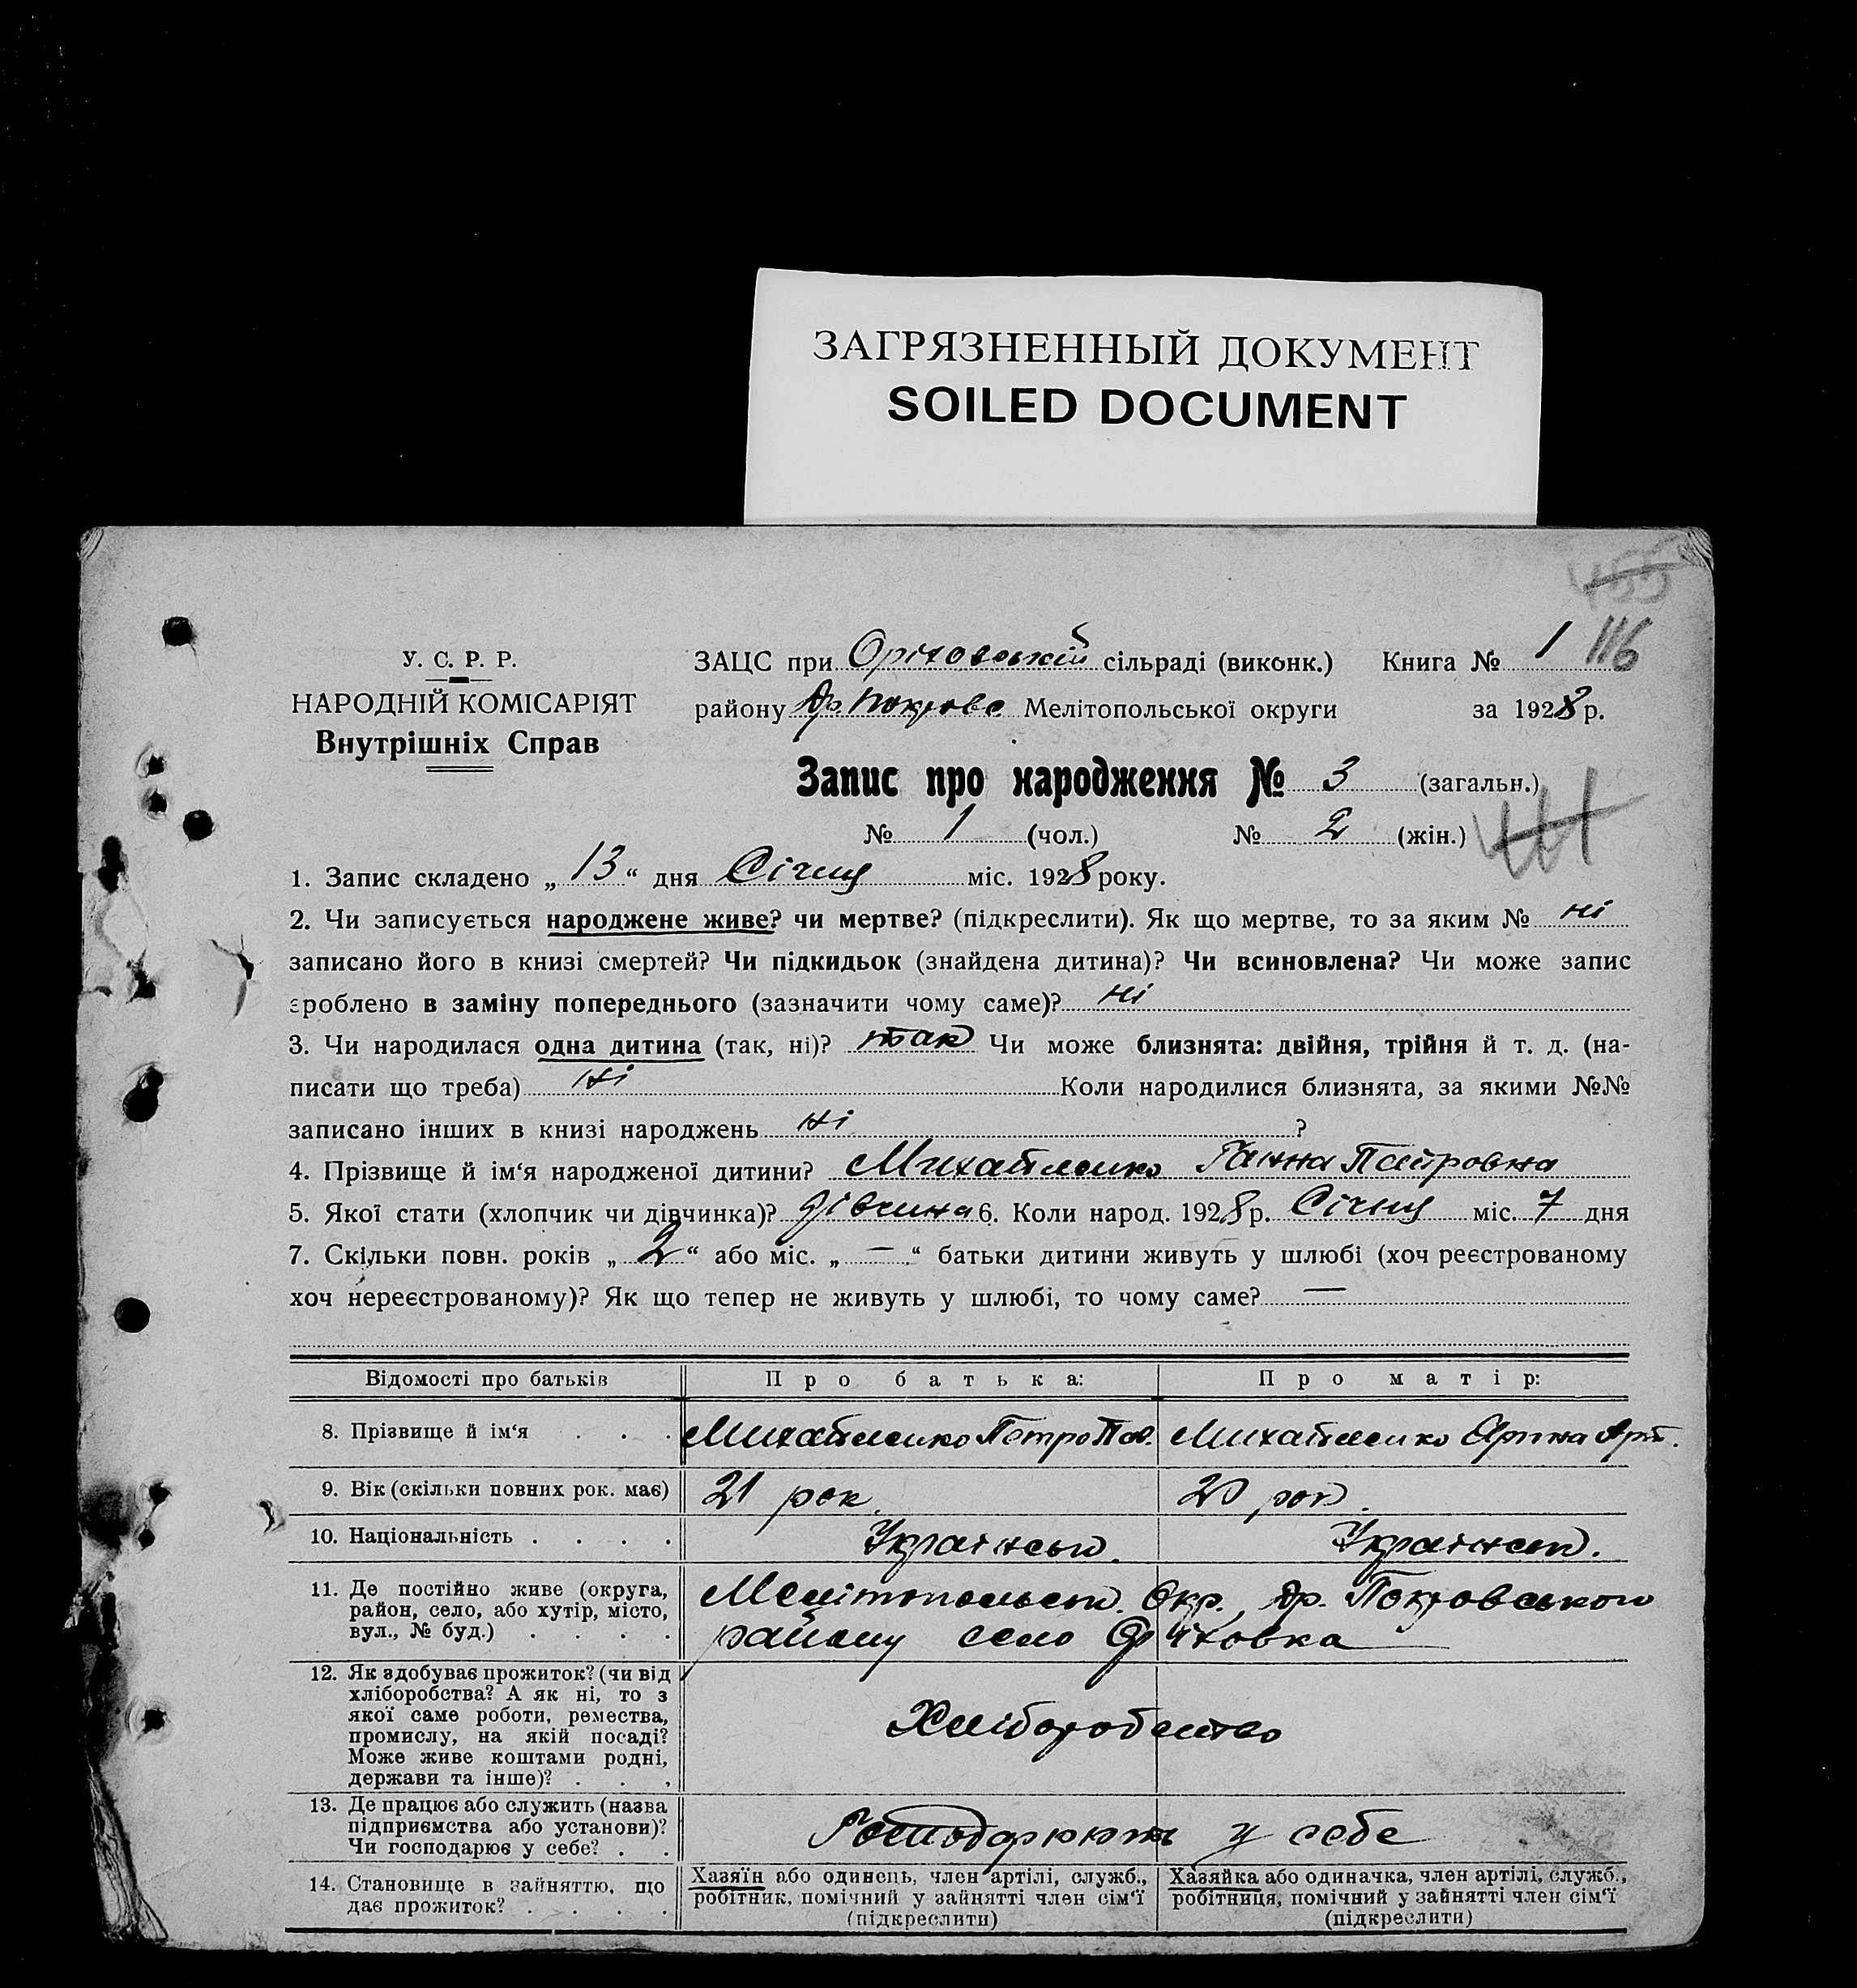 ЗАГРЯЗНЕННЫЙ ДОКУМЕНТ
SOILED DOCUMENT
455
У. С. Р. Р.
НАРОДНІЙ КОМІСАРІЯТ
Внутрішніх Справ
ЗАЦС при Оріховській сільраді (виконк.) Книга № 1 116
району Др. Покровс Мелітопольської округи за 1928 р.
Запис про народження № 3 (загальн.)
№ 1 (чол.) № 2 (жін.)
1. Запис складено „ 13 “ дня Січня міс. 1928 року.
2. Чи записується народжене живе? чи мертве? (підкреслити). Як що мертве, то за яким № ні
записано його в книзі смертей? Чи підкидьок (знайдена дитина)? Чи всиновлена? Чи може запис
зроблено в заміну попереднього (зазначити чому саме)? ні
3. Чи народилася одна дитина (так, ні)? так Чи може близнята: двійня, трійня й т. д. (на-
писати що треба) ні Коли народилися близнята, за якими №№
записано інших в книзі народжень ні ?
4. Прізвище й ім‘я народженої дитини? Михайленко Ганна Петровна
5. Якої стати (хлопчик чи дівчинка)? дівчина 6. Коли народ. 1928 р. Січня міс. 7 дня
7. Скільки повн. років „ 2 “ або міс. „ — “ батьки дитини живуть у шлюбі (хоч реєстрованому
хоч нереєстрованому)? Як що тепер не живуть у шлюбі, то чому саме? —
Відомості про батьків Про батька: Про матір:
8. Прізвище й ім‘я . . . Михайленко Петро Пав. Михайленко Орина Арт.
9. Вік (скільки повних рок. має) 21 рок. 20 рок.
10. Національність . . . . Українськ. Українськ.
11. Де постійно живе (округа, район, село, або хутір, місто, вул., № буд.) . . . . Мелітопольськ. Окр., Др. Покровського
району село Оріховка
12. Як здобуває прожиток? (чи від
хліборобства? А як ні, то з
якої саме роботи, ремества,
промислу, на якій посаді?
Може живе коштами родні,
держави та інше)? . . .
Хліборобство
13. Де працює або служить (назва
підприємства або установи)?
Чи господарює у себе? . .
Господарюють у себе
14. Становище в зайняттю, що
дає прожиток? . . . .
Хазяїн або одинець, член артілі, служб.,
робітник, помічний у зайнятті член сім‘ї
(підкреслити)
Хазяйка або одиначка, член артілі, служб.,
робітниця, помічний у зайнятті член сім‘ї
(підкреслити)